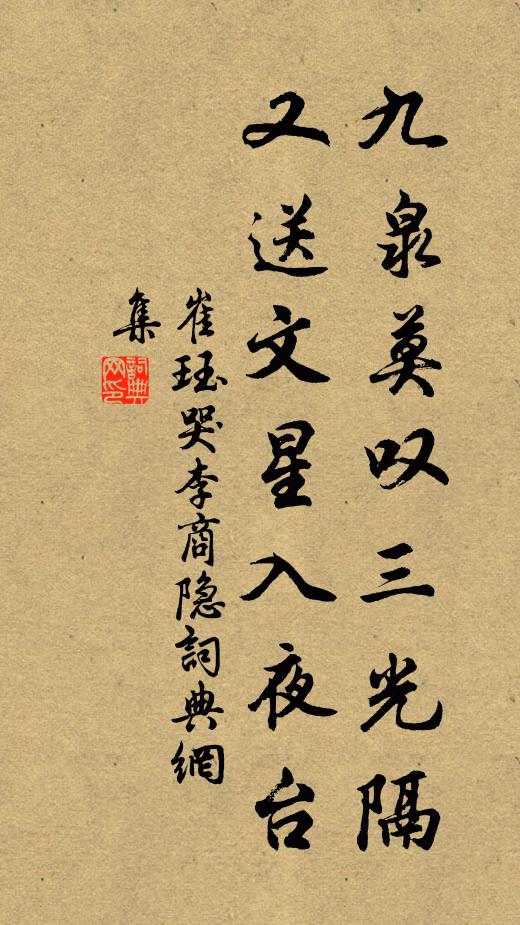 九泉莫叹三光隔
又送文星入夜台
崔珏哭李商隐詞典網
集
詞典
网印